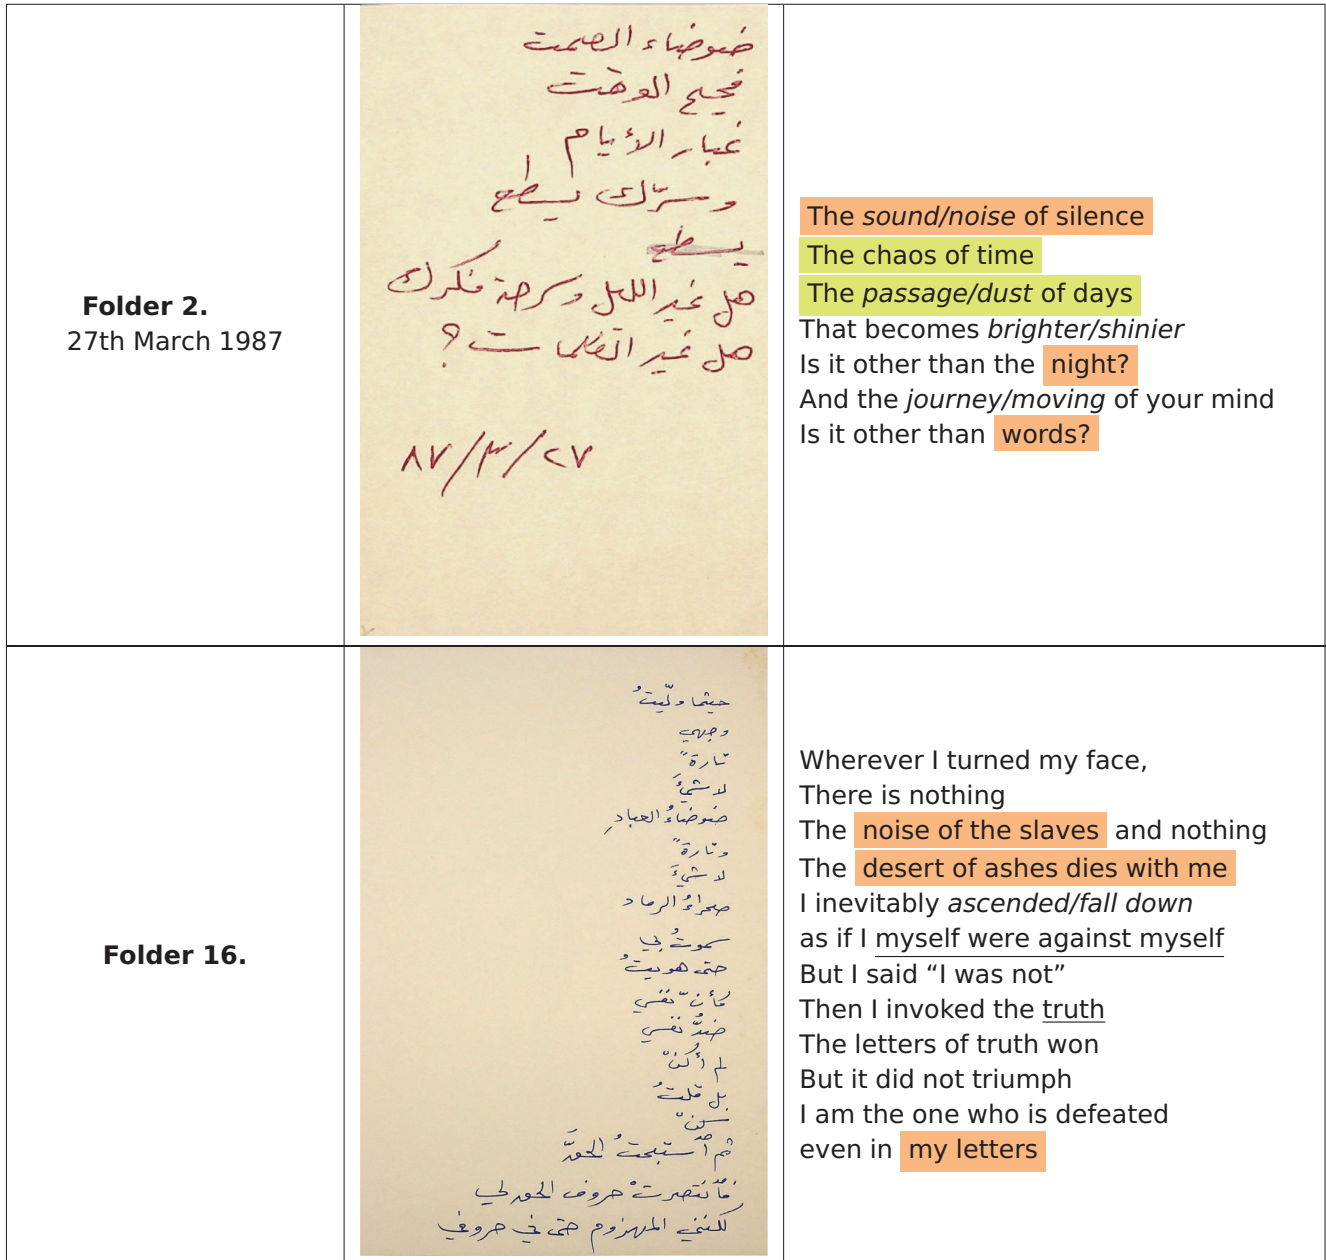 Folder 2.
27th March 1987
ضوضاء الصمت
فحيح الوقت
غبار الأيام
وسرّك يسطع
يسطع
هل غير الليل وسرحة فكرك
هل غير الظلمات؟
٨٧/٣/٢٧
The sound/noise of silence
The chaos of time
The passage/dust of days
That becomes brighter/shinier
Is it other than the night?
And the journey/moving of your mind
Is it other than words?
Folder 16.
حيثما ولّيتُ
وجهي
تارةً
لا شيءَ
ضوضاءُ العبادِ
وتارةً
لا شيءَ
صحراءُ الرماد
سموتُ بي
حتى هويتُ
كأنّ نفسي
ضدُّ نفسي
لم أكنْ
بل قلتُ
ثم استبحتُ الحقَّ
فانتصرتْ حروف الحق لي
لكنني المهزوم حتى في حروفي
Wherever I turned my face,
There is nothing
The noise of the slaves and nothing
The desert of ashes dies with me
I inevitably ascended/fall down
as if I myself were against myself
But I said “I was not”
Then I invoked the truth
The letters of truth won
But it did not triumph
I am the one who is defeated
even in my letters